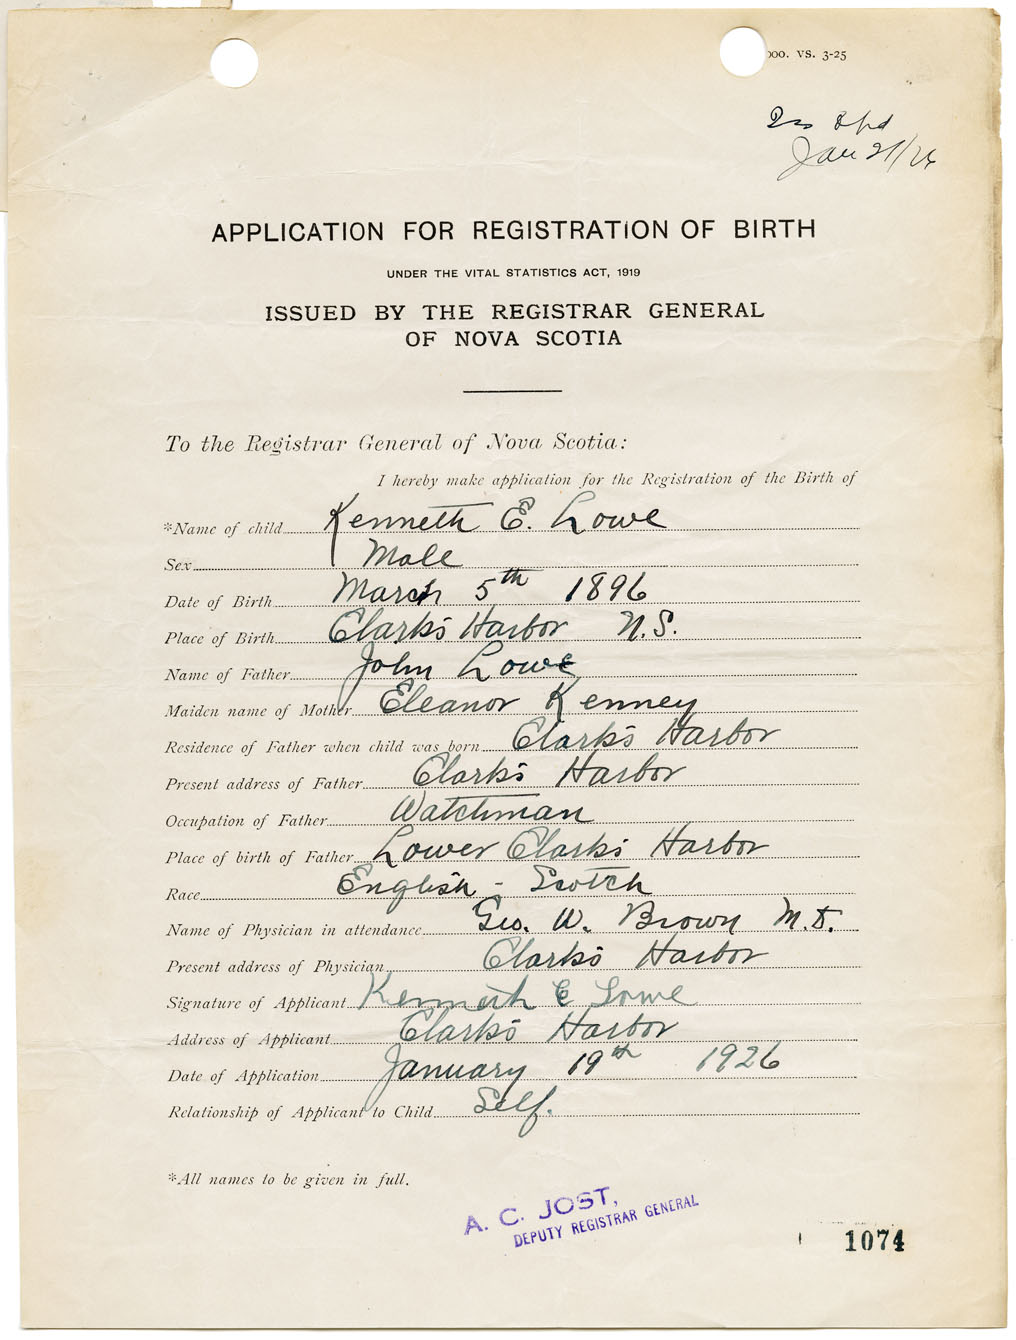 000. VS. 3-25
Jan 21/26
APPLICATION FOR REGISTRATION OF BIRTH
UNDER THE VITAL STATISTICS ACT, 1919
ISSUED BY THE REGISTRAR GENERAL
OF NOVA SCOTIA
To the Registrar General of Nova Scotia:
I hereby make application for the Registration of the Birth of
*Name of child Kenneth E. Lowe
Sex Male
Date of Birth March 5th 1896
Place of Birth Clark's Harbor N.S.
Name of Father John Lowe
Maiden name of Mother Eleanor Kenney
Residence of Father when child was born Clark's Harbor
Present address of Father Clark's Harbor
Occupation of Father Watchman
Place of birth of Father Lower Clark's Harbor
Race English - Scotch
Name of Physician in attendance Geo. W. Brown M.D.
Present address of Physician Clark's Harbor
Signature of Applicant Kenneth E Lowe
Address of Applicant Clark's Harbor
Date of Application January 19th 1926
Relationship of Applicant to Child Self.
*All names to be given in full.
A. C. JOST,
DEPUTY REGISTRAR GENERAL
1074